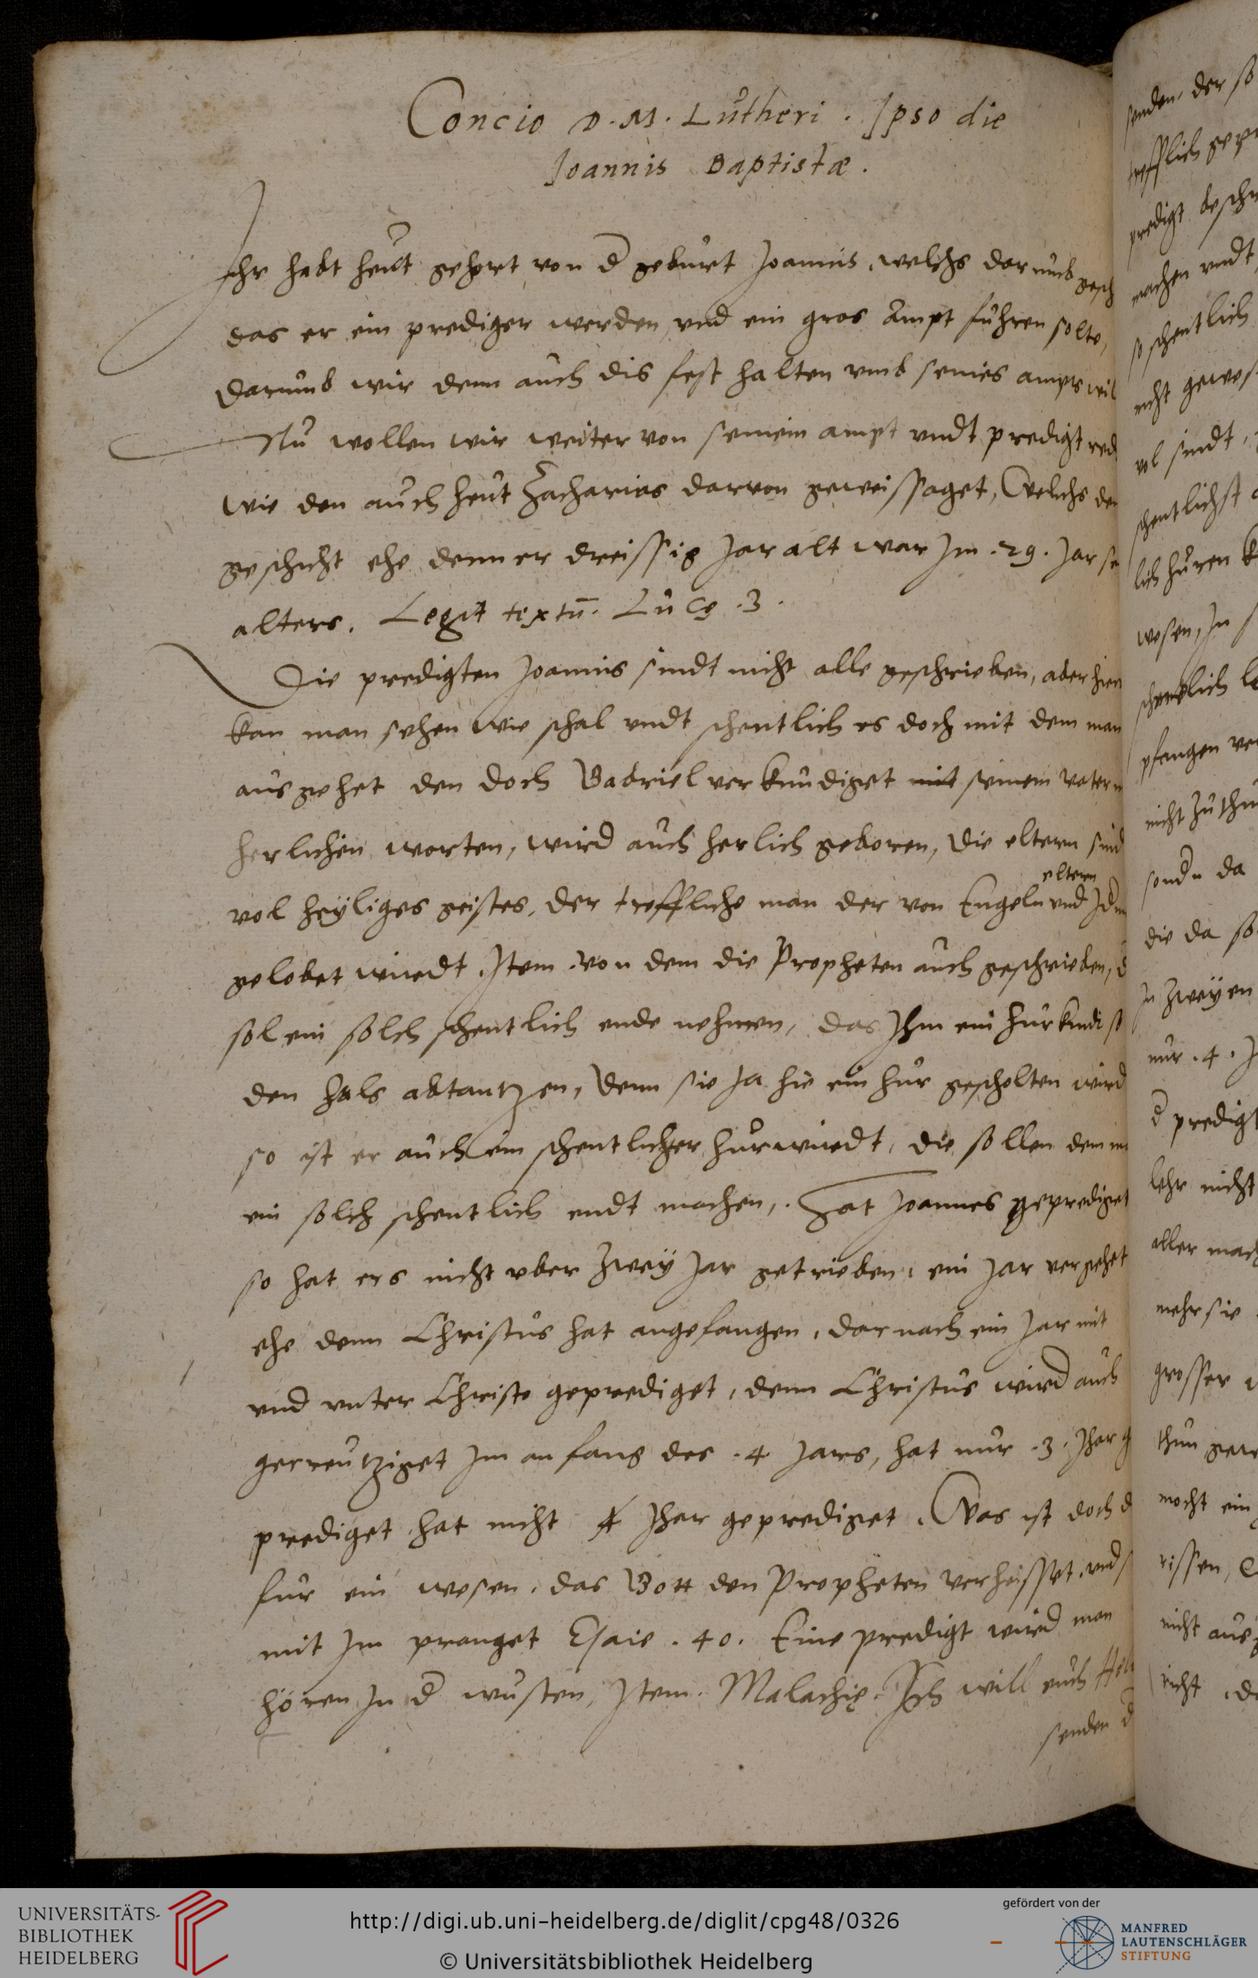 Concio D. M. Lutheri. Ipso die
Joannis Baptistæ.
Ihr habt heut gehort von d geburt Joannis, welchs darumb gesch
das er ein prediger werden vnd ein gros Ampt fuhren solte,
darumb wir denn auch dis fest halten vmb seines ampts wil
Nu wollen wir weiter von seinem ampt vndt predigt red
wie den auch heut Zacharias darvon geweissaget, Welchs den
geschicht ehe denn er dreissig Jar alt war Jm .29. Jar se
alters. Legit textū. Lucę .3.
Die predigten Joannis sindt nicht alle geschrieben, aber hier
kan man sehen wie schal vndt schentlich es doch mit dem man
ausgehet den doch Gabriel verkundiget mit seinem vater
herlichen worten, wird auch herlich geboren, die eltern sind
vol heyliges geistes, der treffliche man der von Engeln vnd
eltern
gelobet wirdt. Jtem von dem die Propheten auch geschrieben, d
sol ein solch schentlich ende nehmen, das Jhm ein hurkindt so
den hals abtantzen, denn sie Ja hie ein hur gescholten wird
so ist er auch ein schentlicher hurwirdt, die sollen dem
ein solch schentlich endt machen, Hat Joannes geprediget
so hat ers nicht vber zwey Jar getrieben, ein Jar vergehet
ehe denn Christus hat angefangen, darnach ein Jar mit
vnd vnter Christo geprediget, denn Christus wird auch
gecreutziget Jm anfang des .4 Jars, hat nur .3. Jhar g
prediget hat nicht 4 Jhar geprediget. Was ist doch d
fur ein wesen, das Gott den Propheten verheisset, vnd
mit Jm pranget Esaie .40. Eine predigt wird man
horen Jn d wusten, Jtem Malachię. Jch will euch
senden d
senden, der so
trefflich
predigt
machen vndt
so schentlich
nicht
vol sindt,
schentlichst
lich huren
wesen, Jn
schendlich
pfangen
nicht zuthun
sondn da
die da so
Jn zweyen
nur .4. J
d predigt
lehr nicht
aller mach
mehr sie
grosser
thun
nocht ein
rissen,
nicht aus
nicht
UNIVERSITÄTS-
BIBLIOTHEK
HEIDELBERG
http://digi.ub.uni-heidelberg.de/diglit/cpg48/0326
© Universitätsbibliothek Heidelberg
gefördert von der
MANFRED
LAUTENSCHLÄGER
STIFTUNG